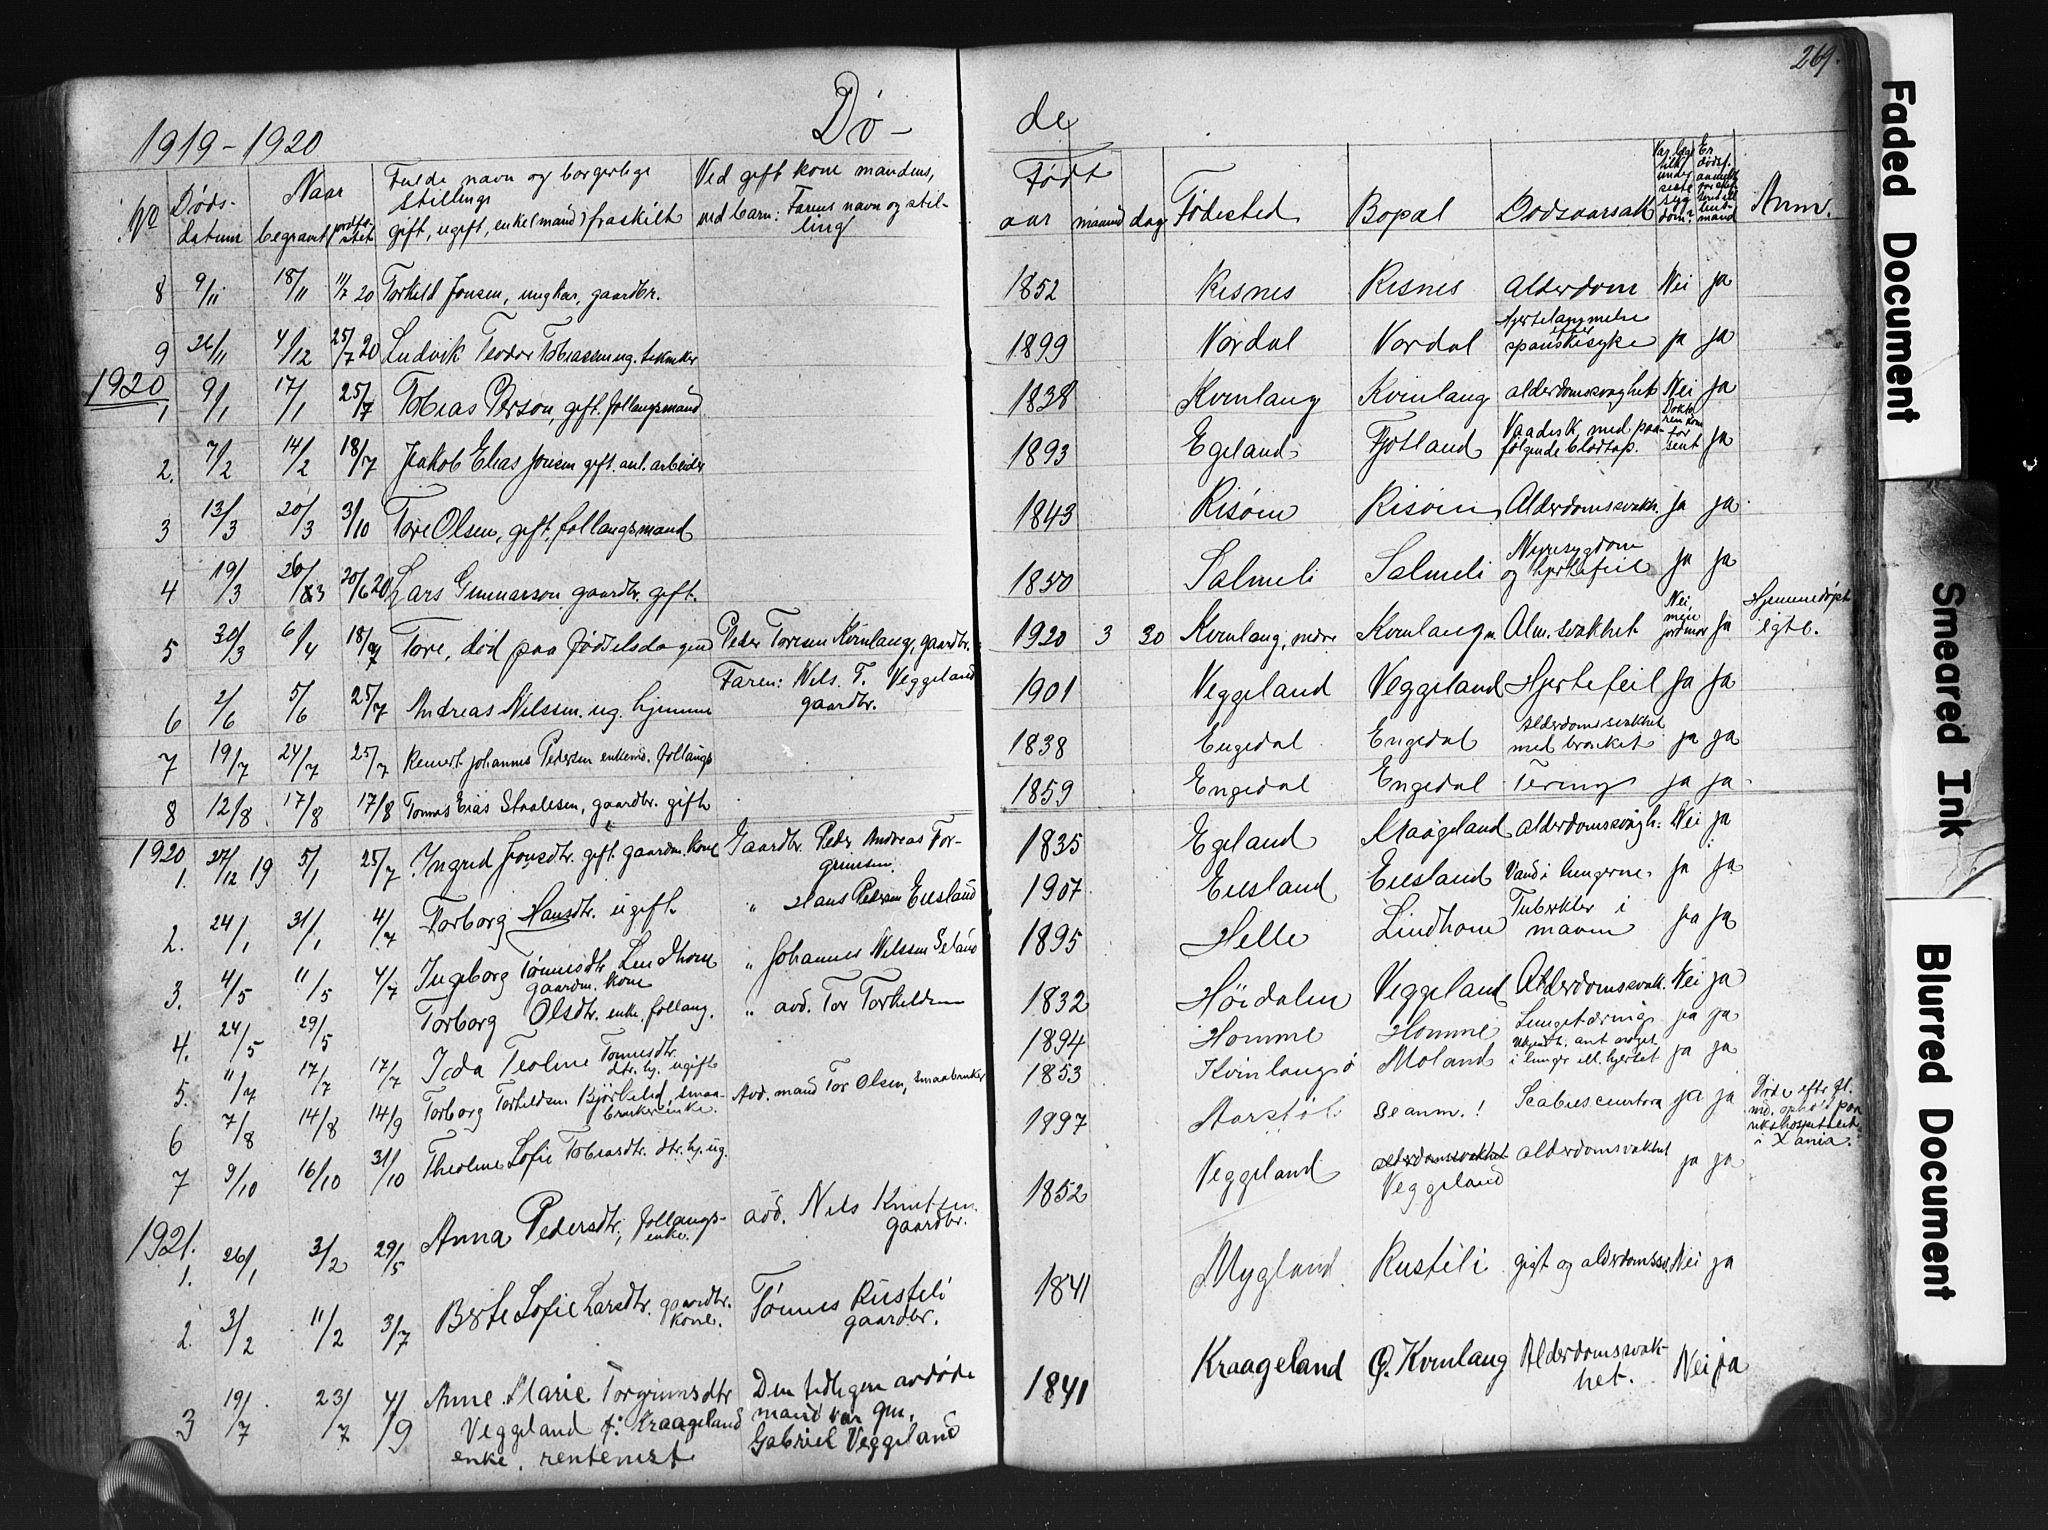 269.
1919-1920 Dø- de
No Døds-datum Naar begravet Fulde navn og borgerlige stilling, gift, ugift, enke(mand) fraskilt Ved gift kone mandens, ved barn: Farens navn og stilling Født aar maaned dag Fødested Bopæl Dødsaarsak Anm.
8 9/11 18/11 11/7 20 Torkild Jonsen, ungkar, gaardbr. 1852 Risnes Risnes Alderdom Nei ja
9 4/12 25/7 20 Ludvik Teodor Tobiassen ug. tekniker 1899 Nordal Nordal Hjertelammelse efter spanskesyke ja ja
1920
1 9/1 17/1 25/7 Tobias Person, gift. follaugsmand 1838 Kvinlaug Kvinlaug alderdomssvaghet Nei ja
2. 7/2 14/2 18/7 Jakob Elias Jonsen gift. anl. arbeider 1893 Egeland Fjotland Vaadesk. med paafølgende blodtap. Doktoren kom for sent ja
3 13/3 20/3 3/10 Tore Olsen, gift, follaugsmand 1843 Risøin Risøin Alderdomssvakh. ja ja
4 19/3 26/3 20/6 20 Lars Gunnarson gaardbr. gift. 1850 Salmeli Salmeli Nyresygdom og hjertefeil ja ja
5 30/3 6/4 18/7 Tore, død paa fødselsdagen Peder Toresen Kvinlaug, gaardbr. 1920 3 30 Kvinlaug, nedre Kvinlaug n. Alm. svakhet Nei, men jordmor ja Hjemmedøpt egte.
6 2/6 5/6 25/7 Andreas Nilssen. ug. hjemme Faren: Nils T. Veggeland gaardbr. 1901 Veggeland Veggeland Hjertefeil ja ja
7 19/7 24/7 25/7 Reinert Johannes Pedersen enkem. follaugs 1838 Engedal Engedal Alderdomssvakhet med bronket ja ja
8 12/8 17/8 17/8 Tønnes Elias Staalesen, gaardbr. gift 1859 Engedal Engedal Tering ja ja
1920
1. 27/12 19 5/1 25/7 Ingrid Jonsdtr. gift. gaardm. kone Gaardbr. Peder Andreas Torgrimsen. 1835 Egeland Kraageland Alderdomssvagh. Nei ja
2. 24/1 31/1 4/7 Torborg Hansdtr. ugift. " Hans Pedersen Eiesland 1907 Eiesland Eiesland Vand i lungerne. ja ja
3. 4/5 11/5 4/7 Ingeborg Tønnesdtr Lindhom gaardm. kone " Johannes Nilssen Seland 1895 Helle Lindhom Tuberkler i maven ja ja
4. 24/5 29/5 Torborg Olsdtr. enke, follaug. " avd. Tor Torkildsen 1832 Høidalen Veggeland Alderdomssvak. Nei ja
5. 11/7 17/7 17/7 Ida Teoline Tønnesdtr. dtr. hj. ugift 1894 Homme Homme Lungetæring ja ja
6 7/8 14/8 14/9 Torborg Torkildsen Bjørkelid, smaabrukerenke. Avd. mand Tor Olsen, smaabruker 1853 Kvinlaugsø Moland i lunger ell. hjertet ja ja
7 9/10 16/10 31/10 Theoline Sofie Tobiasdtr. dtr. hj. ug. 1897 Aarstøl se anm.! ja ja Døde efter i Xania.
1921.
1. 26/1 3/2 29/5 Anna Pedersdtr, follaugsenke. avd. Nils Knutsen gaardbr. 1852 Veggeland Veggeland alderdomsvakhet ja ja
2. 3/2 11/2 3/7 Berte Sofie Larsdtr. gaardbr. kone. Tønnes Rusteli gaardbr. 1841 Mygland Rusteli gigt og alderdomssv. Nei ja
3 19/7 23/7 4/9 Anne Marie Torgrimsdtr Veggeland f: Kraageland enke. rentenist Den tidligere avdøde mand var gm. Gabriel Veggeland 1841 Kraageland Ø. Kvinlaug Alderdomssvakhet. Nei ja
Faded Document
Smeared Ink
Blurred Document